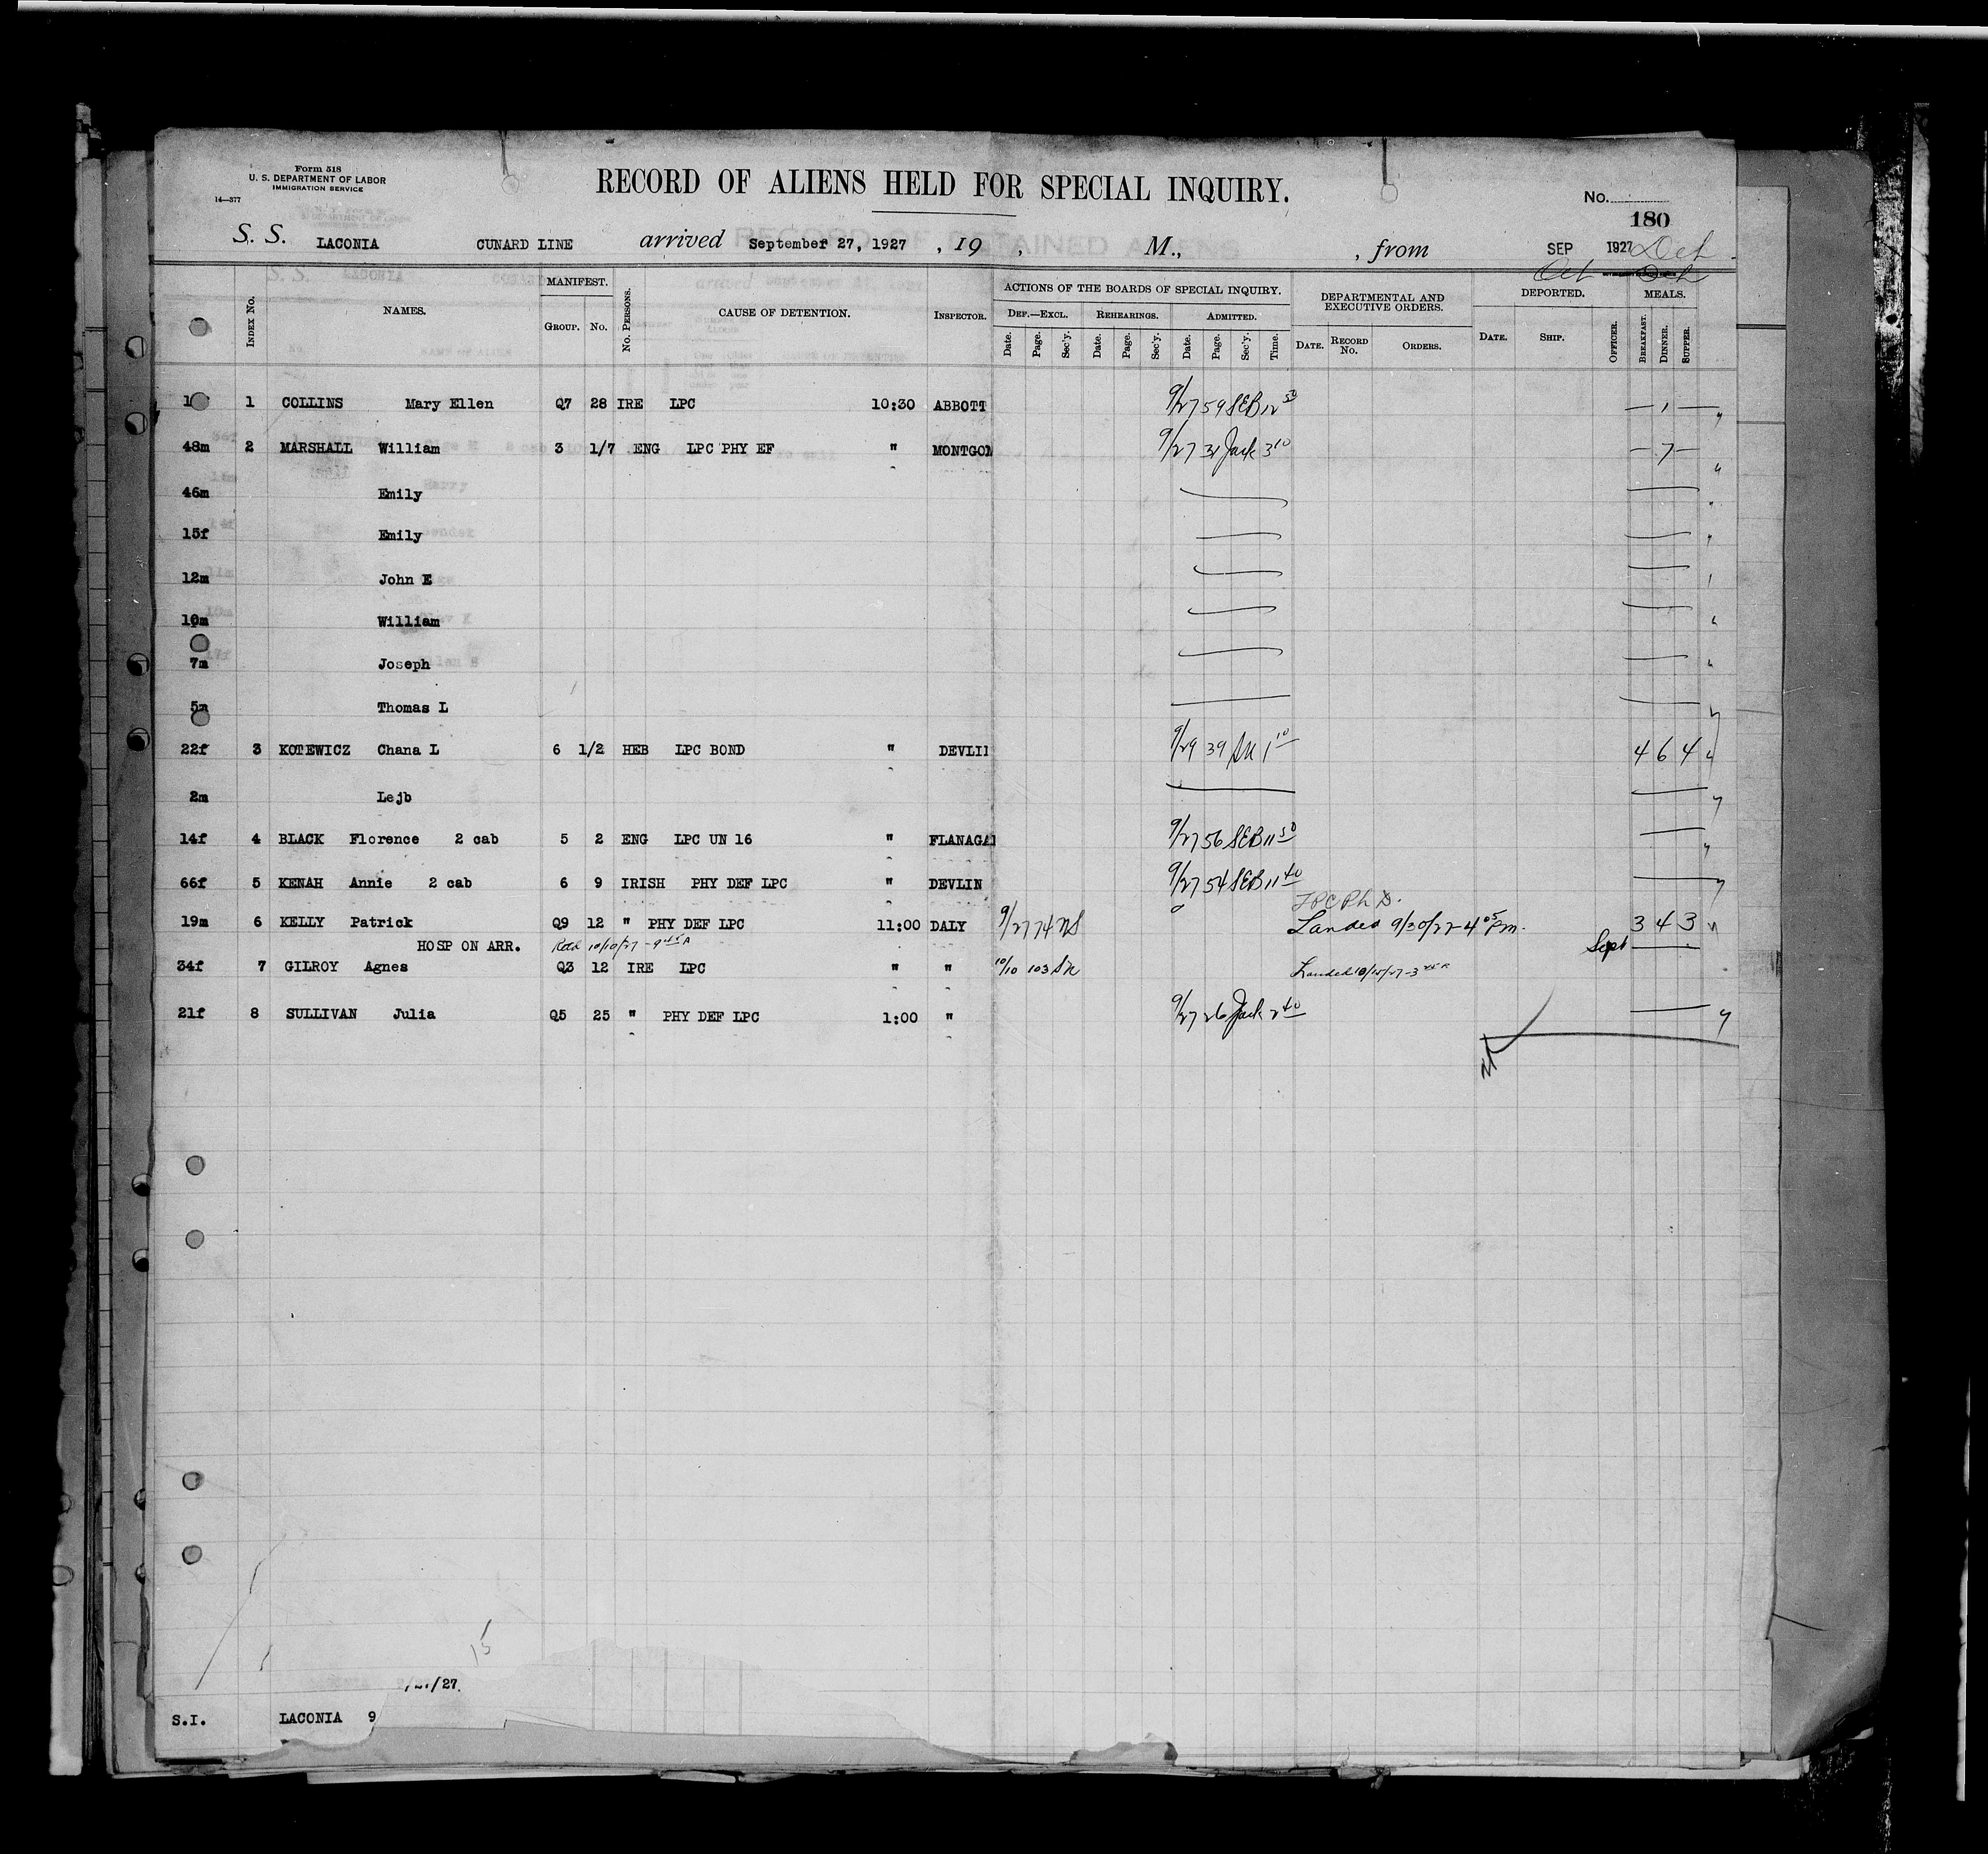 Form 518
U. S. DEPARTMENT OF LABOR
IMMIGRATION SERVICE
14—377
RECORD OF ALIENS HELD FOR SPECIAL INQUIRY.
No.
180
S. S. LACONIA CUNARD LINE arrived September 27, 1927 , 19 , M., , from SEP 1927
MANIFEST. ACTIONS OF THE BOARDS OF SPECIAL INQUIRY. DEPARTMENTAL AND EXECUTIVE ORDERS. DEPORTED. MEALS.
INDEX No. NAMES. GROUP. No. No. PERSONS. CAUSE OF DETENTION. INSPECTOR. DEF.—EXCL. REHEARINGS. ADMITTED.
Date. Page. Sec'y. Date. Page. Sec'y. Date. Page. Sec'y. Time. DATE. RECORD No. ORDERS. DATE. SHIP. OFFICER. BREAKFAST. DINNER. SUPPER.
1 COLLINS Mary Ellen Q7 28 IRE LPC 10:30 ABBOTT 9/27 59 SEB 12 50 — 1 —
48m 2 MARSHALL William 3 1/7 ENG LPC PHY EF " MONTGOM 9/27 31 Jack 3 10 — 7 —
46m Emily
15f Emily
12m John E
10m William
7m Joseph
5m Thomas L
22f 3 KOTEWICZ Chana L 6 1/2 HEB LPC BOND " DEVLIN 9/29 39 1 10 4 6 4
2m Lejb
14f 4 BLACK Florence 2 cab 5 2 ENG LPC UN 16 " FLANAGAN 9/27 56 SEB 11 50
66f 5 KENAH Annie 2 cab 6 9 IRISH PHY DEF LPC " DEVLIN 9/27 54 SEB 11 40
19m 6 KELLY Patrick Q9 12 " PHY DEF LPC 11:00 DALY 9/27 74 Landed 9/30/27 4 05 Pm. 3 4 3
HOSP ON ARR. 10/10/27 - 9 45 A Sept
34f 7 GILROY Agnes Q3 12 IRE LPC " " 10/10 103 Landed
21f 8 SULLIVAN Julia Q5 25 " PHY DEF LPC 1:00 " 9/27 26 Jack 2 40
15
/27.
S.I. LACONIA 9